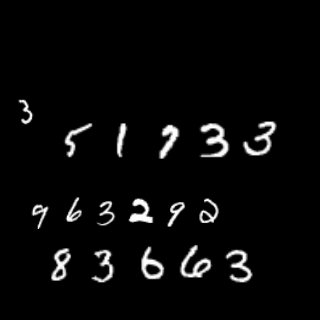 3
51933
963292
83663